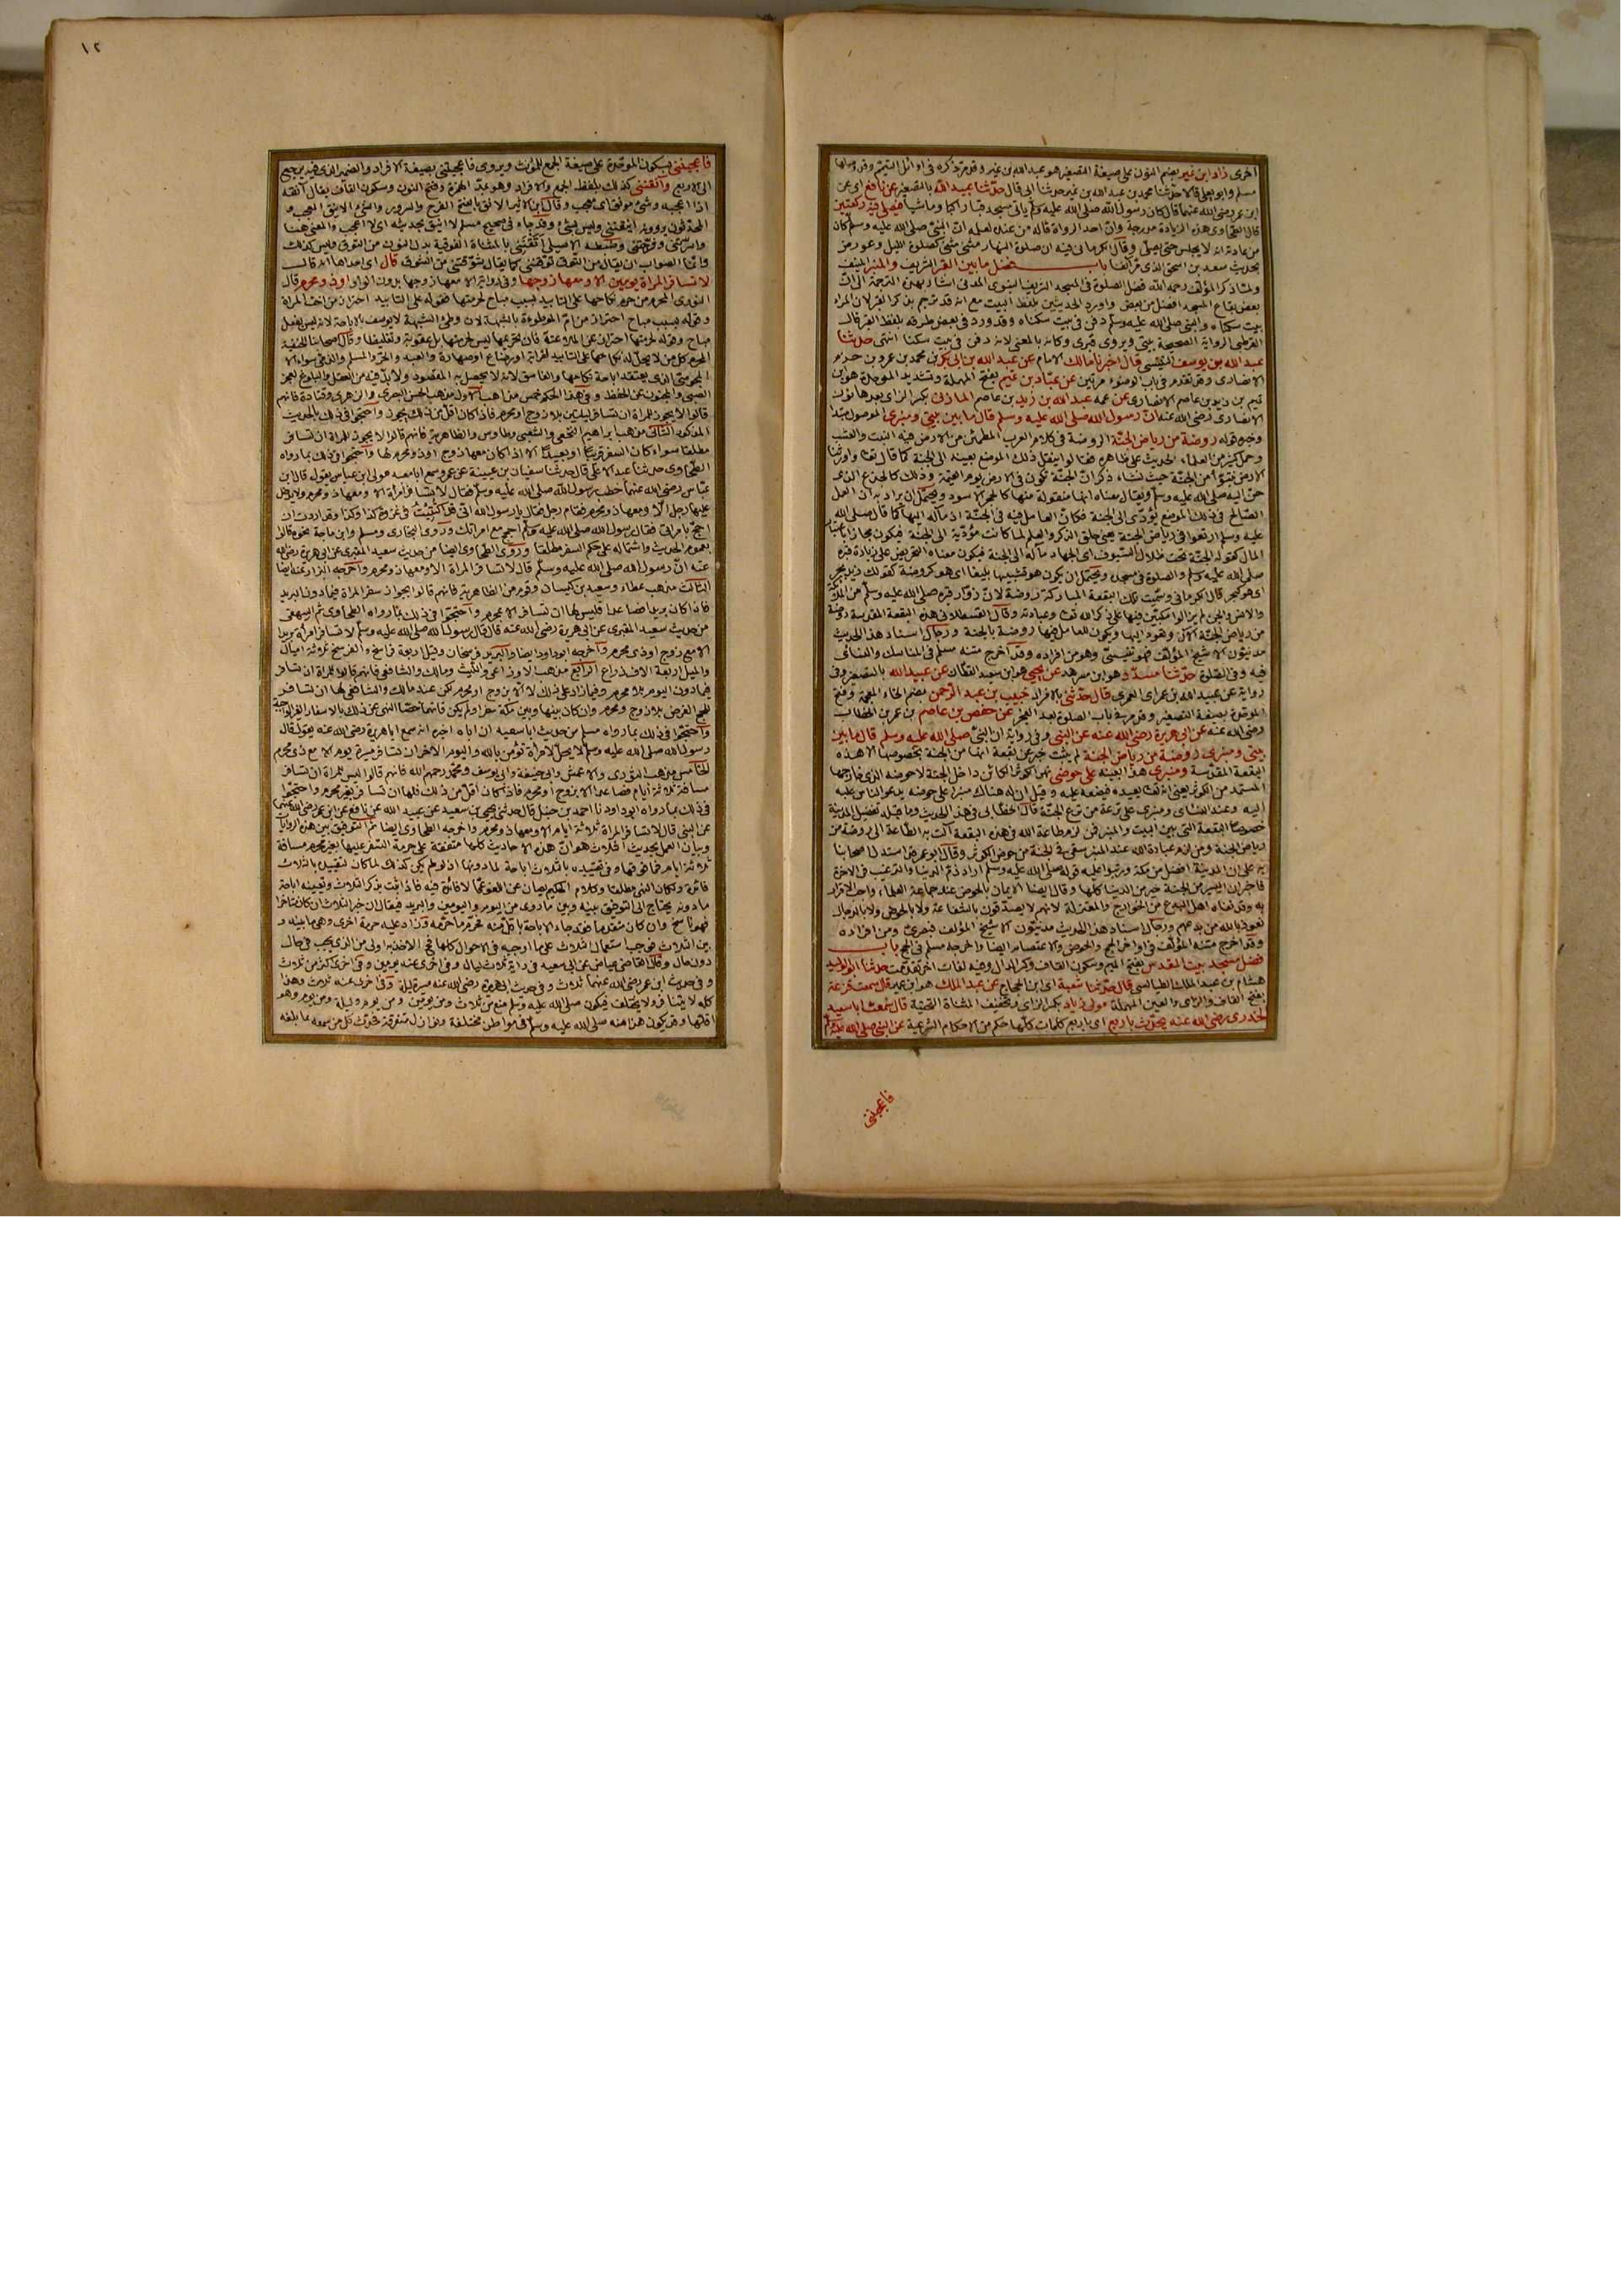 ١٢
اخرى زاد ابن نمير بضم النون على صيغة المصغر هو عبد الله بن نمير وقد مر ذكره في اوائل التيمم وقد وصلها
مسلم وابو يعلى قالا حدثنا محمد بن عبد الله بن نمير حدثنا ابي قال حدثنا عبيد الله بالمصغر عن نافع اى عن
ابن عمر رضي الله عنهما قال كان رسول الله صلى الله عليه وسلم ياتي مسجد قبا راكبا وماشيا فيصلي فيه ركعتين
قال الطحاوى هذه الزيادة مدرجة وان احد الرواة قاله من عنده لعلمه ان النبي صلى الله عليه وسلم كان
من عادته انه لا يجلس حتى يصلي وقال الكرماني فيه ان صلوة النهار مثنى مثنى كصلوة الليل وعورض
بحديث سعد بن اسحق الذى مر آنفا باب فضل ما بين القبر الشريف والمنبر المنيف
ولما ذكر المؤلف رحمه الله فضل الصلوة في المسجد الشريف النبوى المدني اشار بهذه الترجمة الى ان
بعض بقاع المسجد افضل من بعض واورد الحديثين بلفظ البيت مع انه قد ترجم بذكر القبر لان المراد
بيت سكناه والنبي صلى الله عليه وسلم دفن في بيت سكناه وقد ورد في بعض طرقه بلفظ القبر قال
القرطبي الرواية الصحيحة بيتي ويروى قبرى وكانه بالمعنى لانه دفن في بيت سكنا انتهى حدثنا
عبد الله بن يوسف التنيسي قال اخبرنا مالك الامام عن عبد الله بن ابي بكر بن محمد بن عمرو بن حزم
الانصارى وقد تقدم في باب الوضوء مرتين عن عباد بن تميم بفتح المهملة وتشديد الموحدة هو ابن
تميم بن زيد بن عاصم الانصارى عن عمه عبد الله بن زيد بن عاصم المازني بكسر الزاى بعدها نون
الانصارى رضي الله عنه ان رسول الله صلى الله عليه وسلم قال ما بين بيتي ومنبرى الموصول مبتدا
وخبره قوله روضة من رياض الجنة الروضة في كلام العرب المطمئن من الارض فيه النبت والعشب
وحمل كثير من العلماء الحديث على ظاهره فقالوا ينقل ذلك الموضع بعينه الى الجنة كما قال تعالى واورثنا
الارض نتبوأ من الجنة حيث نشاء ذكر ان الجنة تكون في الارض يوم القيمة وذلك كالجذع الذى
حن اليه صلى الله عليه وسلم ويقال معناه انها منقولة منها كالحجر الاسود ويحتمل ان يراد به ان العمل
الصالح في ذلك الموضع يؤدى الى الجنة فكان العامل فيه في الجنة اذ مآله اليها كما قال صلى الله
عليه وسلم ارتعوا في رياض الجنة يعني حلق الذكر والعلم لما كانت مؤدية الى الجنة فيكون مجازا باعتبار
المال كقوله الجنة تحت ظلال السيوف اى الجهاد مآله الى الجنة فيكون معناه التحريض على زيارة قبره
صلى الله عليه وسلم والصلوة في مسجده ويحتمل ان يكون هو تشبيها بليغا اى هو كروضة كقولك زيد بحر
اى هو كبحر قال الكرماني وسميت تلك البقعة المباركة روضة لان زوار قبره صلى الله عليه وسلم من الملائكة
والانس والجن لم يزالوا مكبين فيها على ذكر الله تعالى وعبادته وقال القسطلاني هذه البقعة المقدسة روضة
من رياض الجنة الآن وتعود اليها ويكون للعامل فيها روضة بالجنة ورجال اسناد هذا الحديث
مدنيون الا شيخ المؤلف فهو تنيسي وهو من افراده وقد اخرج متنه مسلم في المناسك والنسائي
فيه وفي الصلوة حدثنا مسدد هو ابن مسرهد عن يحيى هو ابن سعيد القطان عن عبيد الله بالتصغير وفي
رواية عن عبيد الله بن عمر اى العمرى قال حدثني بالافراد خبيب بن عبد الرحمن بضم الخاء المعجمة وفتح
الموحدة بصيغة التصغير وقد مر في باب الصلوة بعد الفجر عن حفص بن عاصم بن عمر بن الخطاب
رضي الله عنه عن ابي هريرة رضي الله عنه عن النبي وفي رواية ان النبي صلى الله عليه وسلم قال ما بين
بيتي ومنبرى روضة من رياض الجنة لم يثبت خبر عن بقعة انها من الجنة بخصوصها الا هذه
البقعة المقدسة ومنبرى هذا بعينه على حوضي نهر الكوثر الكائن داخل الجنة لا حوضه الذى خارجها
المستمد من الكوثر يعني انه تعالى يعيده فيضعه عليه وقيل ان له هناك منبرا على حوضه يدعو الناس عليه
اليه وعند النسائي ومنبرى على ترعة من ترع الجنة قال الخطابي في هذا الحديث وما قبله تفضيل المدينة
خصوصا البقعة التي بين البيت والمنبر فمن لزم طاعة الله في هذه البقعة آلت به الطاعة الى روضة من
رياض الجنة ومن لزم عبادة الله عند المنبر سقي في الجنة من حوض الكوثر وقال ابو عمر فقد استدل اصحابنا
به على ان المدينة افضل من مكة وركبوا عليه قوله صلى الله عليه وسلم اراد ذم الدنيا والترغيب في الاخرة
فاخبر ان اليسير من الجنة خير من الدنيا كلها وقال ايضا الايمان بالحوض عند جماعة العلماء واجب الاقرار
به وقد نفاه اهل البدع من الخوارج والمعتزلة لانهم لا يصدقون بالشفاعة ولا بالحوض ولا بالدجال
نعوذ بالله من بدعهم ورجال اسناد هذا الحديث مدنيون الا شيخ المؤلف فبصرى ومن افراده
وقد اخرج متنه المؤلف في اواخر الحج والحوض والاعتصام ايضا واخرجه مسلم في الحج باب
فضل مسجد بيت المقدس بفتح الميم وسكون القاف وكسر الدال وفيه لغات اخر تقدمت حدثنا ابو الوليد
هشام بن عبد الملك الطيالسي قال حدثنا شعبة اى ابن الحجاج عن عبد الملك هو ابن عمير قال سمعت قزعة
بفتح القاف والزاى والعين المهملة مولى زياد بكسر الزاى وتخفيف المثناة التحتية قال سمعت ابا سعيد
الخدرى رضي الله عنه يحدث باربع اى باربع كلمات كلها حكم من الاحكام الشرعية عن النبي صلى الله عليه وسلم
فاعجبنني
فاعجبنني بسكون الموحدة على صيغة الجمع للمؤنث ويروى فاعجبتني بصيغة الافراد والضمير الذى فيه يرجع
الى الاربع وآنقنني كذلك بلفظ الجمع والافراد وهو بمد الهمزة وفتح النون وسكون القاف يقال آنقه
اذا اعجبه وشيء مونق اى معجب وقال ابن الاثير الانق بالفتح الفرح والسرور والشيء الانيق المعجب و
المحدثون يروونه اينقنني وليس بشيء وقد جاء في صحيح مسلم لا اينق بحديثه اى لا اعجب والمعنى هنا
واسررنني وفرحنني وضبطه الاصيلي اتقنني بالمثناة الفوقية بدل النون من التوق وليس كذلك
وانما الصواب ان يقال من التوق توقنني كما يقال شوقتني من الشوق قال اى احداها انه قال
لا تسافر المرأة يومين الا ومعها زوجها وفي رواية الا معها زوجها بدون الواو او ذو محرم قال
النووى المحرم من حرم نكاحها على التابيد بسبب مباح لحرمتها فقوله على التابيد احتراز من اخت المرأة
وقوله بسبب مباح احتراز من ام الموطوءة بالشبهة لان وطئ الشبهة لا يوصف بالاباحة لانه ليس بفعل
مباح وقوله لحرمتها احتراز عن الملاعنة فان تحريمها ليس لحرمتها بل عقوبة وتغليظا وقال اصحابنا الحنفية
المحرم كل من لا يحل له نكاحها على التابيد لقرابة او رضاع او صهارة والعبد والحر والمسلم والذمي سواء الا
المجوسي الذى يعتقد اباحة نكاحها والفاسق لانه لا يحصل به المقصود ولا بد فيه من العقل والبلوغ لعجز
الصبي والمجنون عن الحفظ وفي هذا الحكم خمس مذاهب الاول مذهب الحسن البصرى والزهرى وقتادة فانهم
قالوا لا يجوز للمرأة ان تسافر ليلتين بلا زوج ومحرم فاذا كان اقل من ذلك يجوز واحتجوا في ذلك بالحديث
المذكور الثاني مذهب ابراهيم النخعي والشعبي وطاوس والظاهرية فانهم قالوا لا يجوز للمرأة ان تسافر
مطلقا سواء كان السفر قريبا او بعيدا الا اذا كان معها زوج او ذو محرم لها واحتجوا في ذلك بما رواه
الطحاوى حدثنا عبد الاعلى قال حدثنا سفيان بن عيينة عن عمرو سمع ابا معبد مولى ابن عباس يقول قال ابن
عباس رضي الله عنهما خطب رسول الله صلى الله عليه وسلم فقال لا تسافر امرأة الا ومعها ذو محرم ولا يدخل
عليها رجل الا ومعها ذو محرم فقام رجل فقال يا رسول الله اني قد اكتتبت في غزوة كذا وكذا وقد اردت ان
احج بامراتي فقال رسول الله صلى الله عليه وسلم احجج مع امراتك وروى البخارى ومسلم وابن ماجة نحوه قالوا
بعموم الحديث واشتماله على حكم السفر مطلقا وروى الطحاوى ايضا من حديث سعيد المقبرى عن ابي هريرة رضي الله
عنه ان رسول الله صلى الله عليه وسلم قال لا تسافر المرأة الا ومعها ذو محرم واخرجه البزار عنه ايضا
الثالث مذهب عطاء وسعيد بن كيسان وقوم من الظاهرية فانهم قالوا بجواز سفر المرأة فيما دون البريد
فاذا كان بريدا فصاعدا فليس لها ان تسافر الا بمحرم واحتجوا في ذلك بما رواه الطحاوى ثم البيهقي
من حديث سعيد المقبرى عن ابي هريرة رضي الله عنه قال قال رسول الله صلى الله عليه وسلم لا تسافر امرأة بريدا
الا مع زوج او ذى محرم واخرجه ابو داود ايضا والبريد فرسخان وقيل اربعة فراسخ والفرسخ ثلاثة اميال
والميل اربعة الاف ذراع الرابع مذهب الاوزاعي والليث ومالك والشافعي فانهم قالوا للمرأة ان تسافر
فيما دون اليوم بلا محرم وفيما زاد على ذلك لا الا بزوج او محرم لكن عند مالك والشافعي لها ان تسافر
للحج الفرض بلا زوج ومحرم وان كان بينها وبين مكة سفر اولم يكن فانهما خصا النهي عن ذلك بالاسفار الغير الواجبة
واحتجوا في ذلك بما رواه مسلم من حديث ابا سعيد ان اباه اخبره انه سمع ابا هريرة رضي الله عنه يقول قال
رسول الله صلى الله عليه وسلم لا يحل لامرأة تؤمن بالله واليوم الاخر ان تسافر مسيرة يوم الا مع ذى محرم
الخامس مذهب الثورى والاعمش وابي حنيفة وابي يوسف ومحمد رحمهم الله فانهم قالوا ليس للمرأة ان تسافر
مسافة ثلاثة ايام فصاعدا الا بزوج او محرم فاذا كان اقل من ذلك فلها ان تسافر بغير محرم واحتجوا
في ذلك بما رواه ابو داود نا احمد بن حنبل قال حدثني يحيى بن سعيد عن عبيد الله عن نافع عن ابن عمر رضي الله عنهما
عن النبي قال لا تسافر المرأة ثلاثة ايام الا ومعها ذو محرم واخرجه الطحاوى ايضا ثم التوفيق بين هذه الروايات
وبيان العمل بحديث الثلاث هو ان هذه الاحاديث كلها متفقة على حرمة السفر عليها بغير محرم مسافة
ثلاثة ايام فما فوقها وفي تقييده بالثلاث اباحة لما دونها اذ لو لم يكن كذلك لما كان لتقييده بالثلاث
فائدة ولكان النهي مطلقا وكلام الحكيم يصان عن اللغو عما لا فائدة فيه فاذا ثبت بذكر الثلاث وتعيينه اباحة
ما دونه يحتاج الى التوفيق بينه وبين ما روى من اليوم واليومين والبريد فيقال ان خبر الثلاث ان كان متاخرا
فهو ناسخ وان كان متقدما فقد جاء الاباحة باقل منه ثم حرم ما حرمه وزاد عليه حرمة اخرى وهي ما بينه و
بين الثلاث فوجب استعمال الثلاث على ما اوجبه في الاحوال كلها فحينئذ الاخذ به اولى من الذى يجب في حال
دون حال وقال القاضي عياض عن ابي سعيد في رواية ثلاث ليال وفي اخرى عنه يومين وفي اخرى اكثر من ثلاث
وفي حديث ابن عمر رضي الله عنهما ثلاث وفي حديث ابي هريرة رضي الله عنه مسيرة ليلة وفي اخرى عنه ثلاث وهذا
كله لا يتنافر ولا يختلف فيكون صلى الله عليه وسلم منع من ثلاث ومن يومين ومن يوم وليلة ومن يوم وهو
اقلها وقد يكون هذا منه صلى الله عليه وسلم في مواطن مختلفة ونوازل متفرقة فحدث كل من سمعه بما بلغه